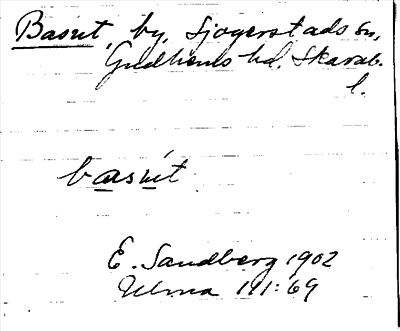 Basut, by, Sjogerstads sn,
Gudhems hd, Skarab.
l.
basut
E. Sandberg 1902
Ulma 111:69